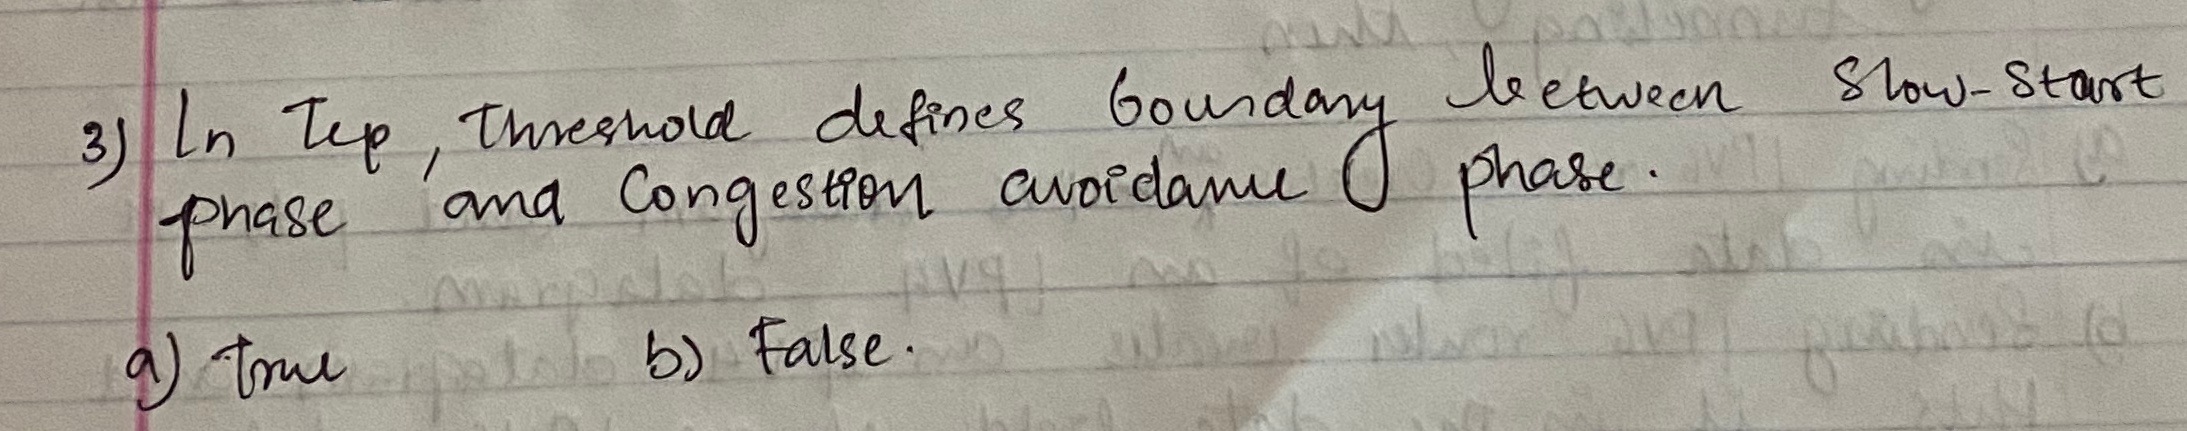 3) In Tcp, threshold defines boundary between Slow-Start
phase and Congestion avoidance phase.
a) true b) False.